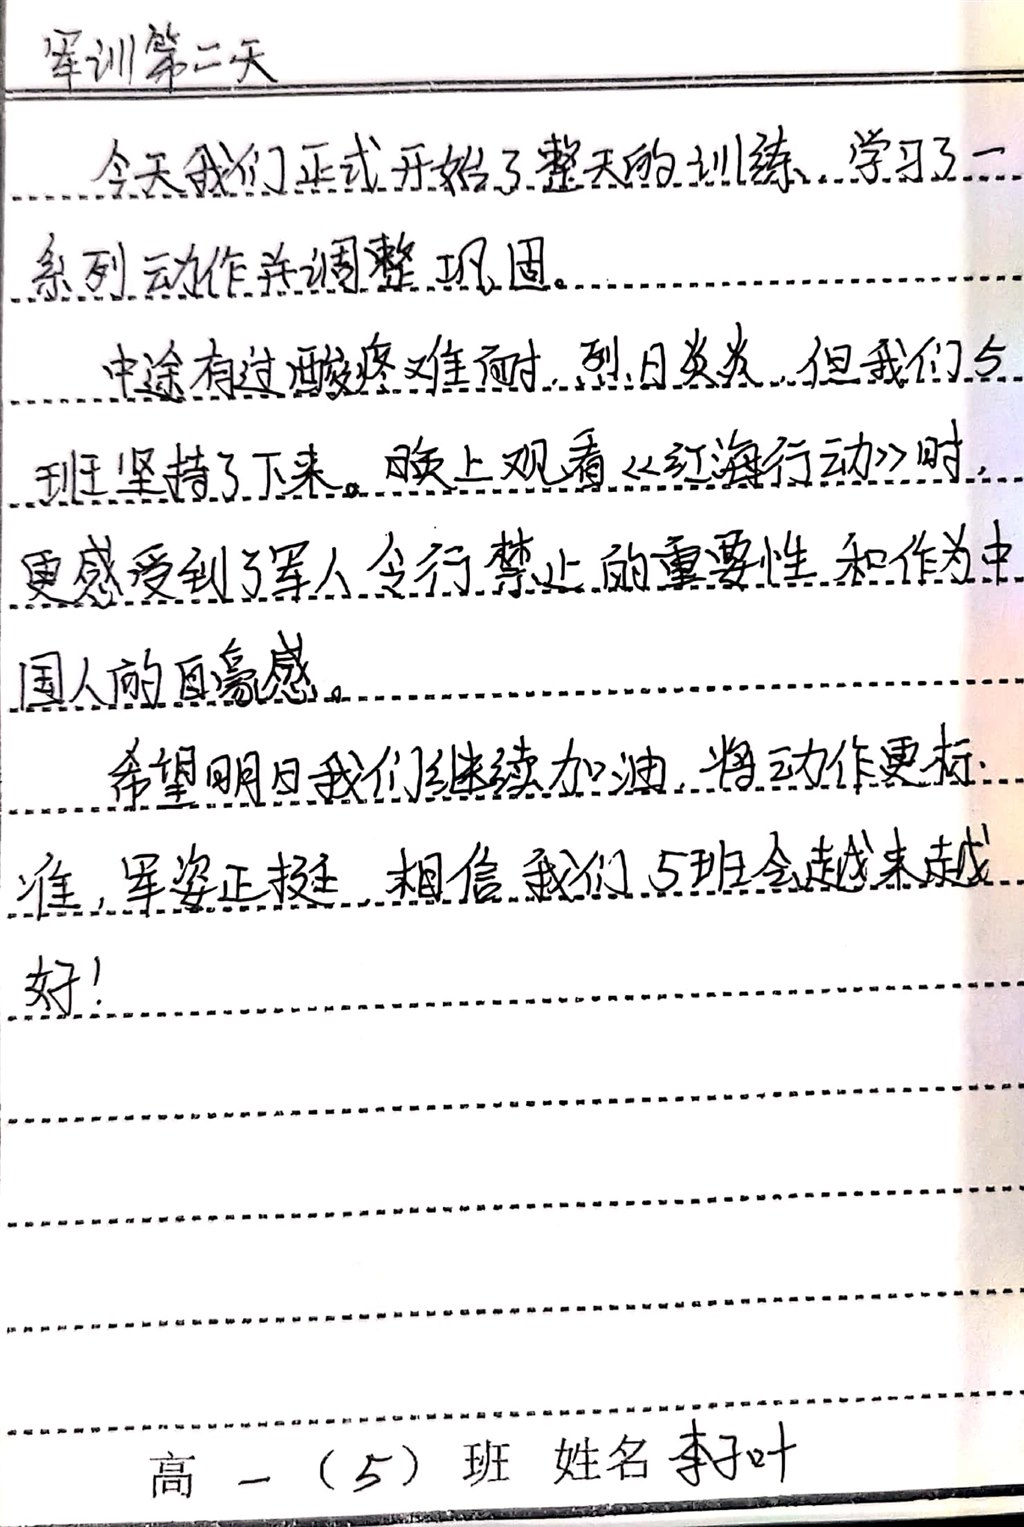 军训第二天
今天我们正式开始了整天的训练,学习了一
系列动作并调整巩固。
中途有过酸疼难耐,烈日炎炎,但我们5
班坚持了下来。晚上观看《红海行动》时,
更感受到了军人令行禁止的重要性和作为中
国人的自豪感。
希望明日我们继续加油,将动作更标
准,军姿正挺,相信我们5班会越来越
好!
高一(5)班 姓名李子叶